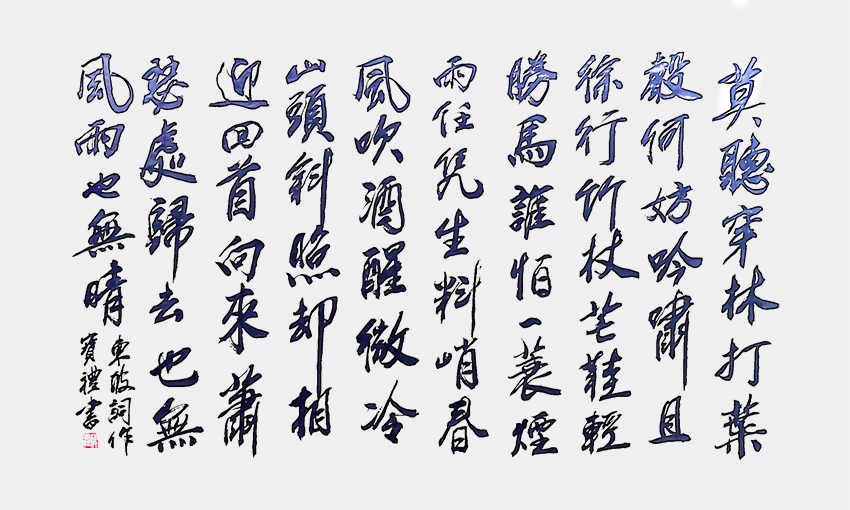 莫聽穿林打葉
聲何妨吟嘯且
徐行竹杖芒鞋輕
勝馬誰怕一蓑煙
雨任凭生料峭春
風吹酒醒微冷
山頭斜照却相
迎回首向來蕭
瑟處歸去也無
風雨也無晴
東坡詞作
寶禮書